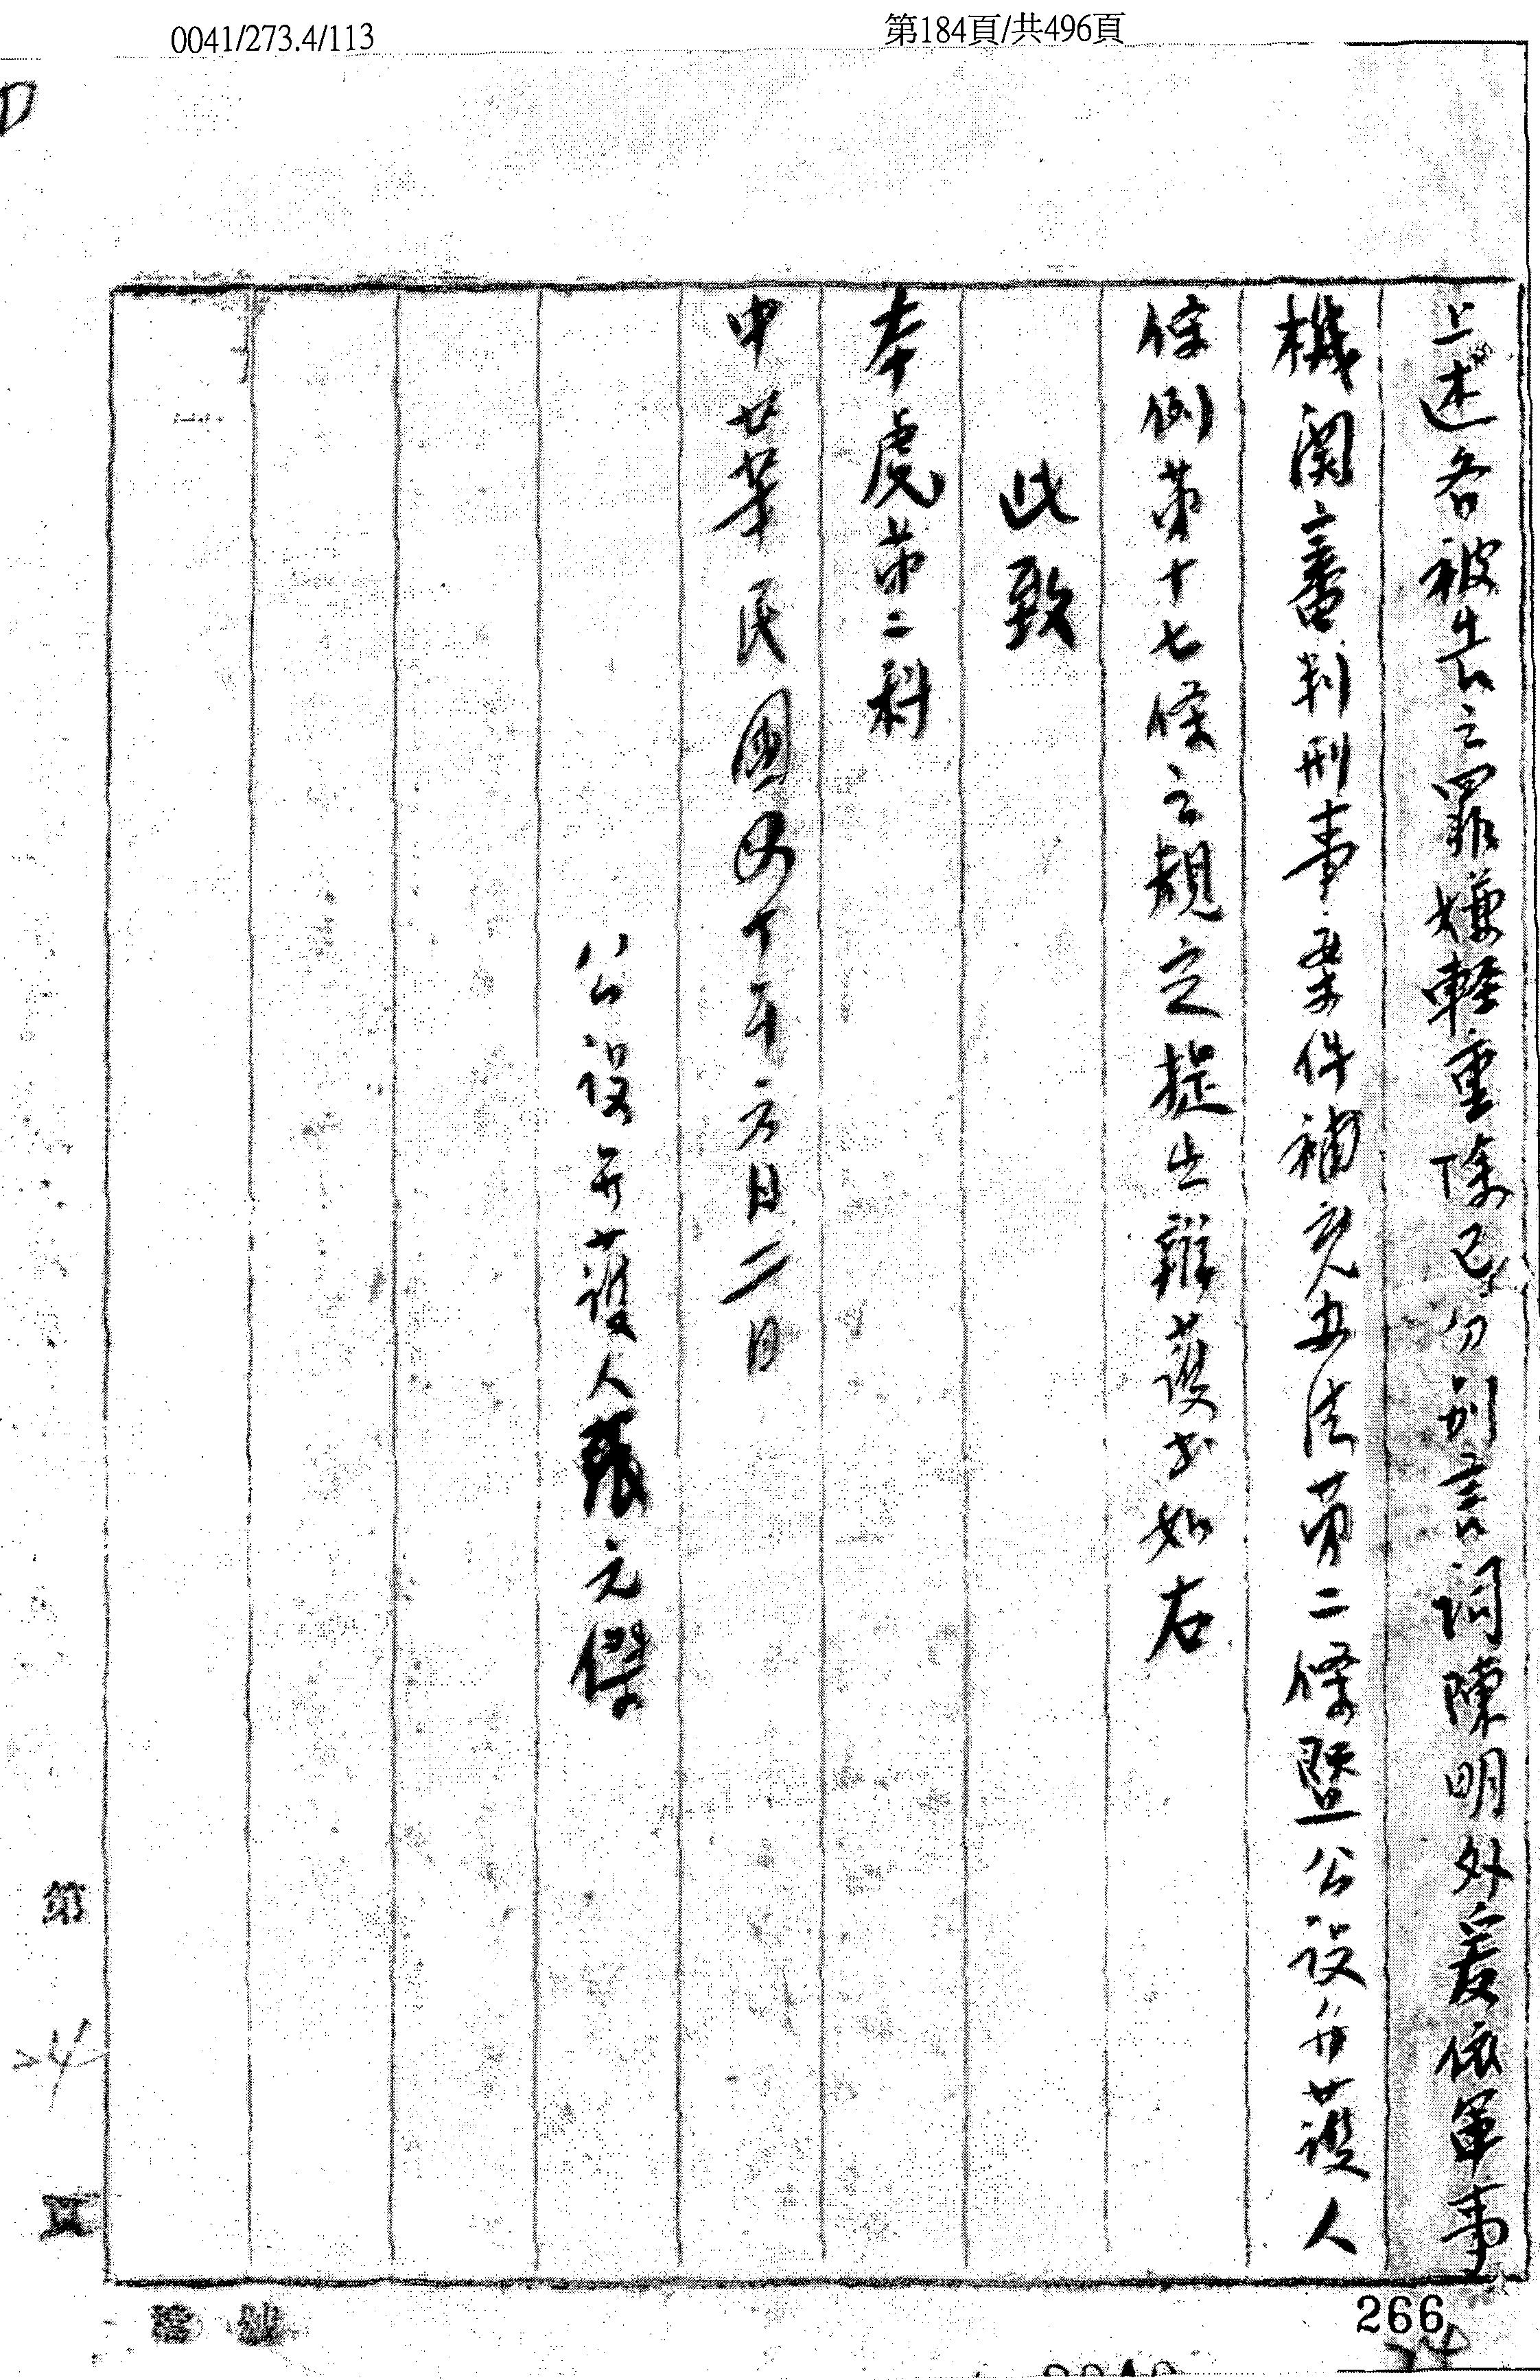 0041/273.4/113
第184頁/共496頁
上述各被告之罪嫌輕重除已分別言詞陳明外爰依軍事
機関審判刑事案件補充办法第二條暨公設弁護人
條例第十七條之規定提出辯護書如右
此致
本處第二科
中華民國四十年六月二日
公設弁護人張元傑
第
24
頁
266
24